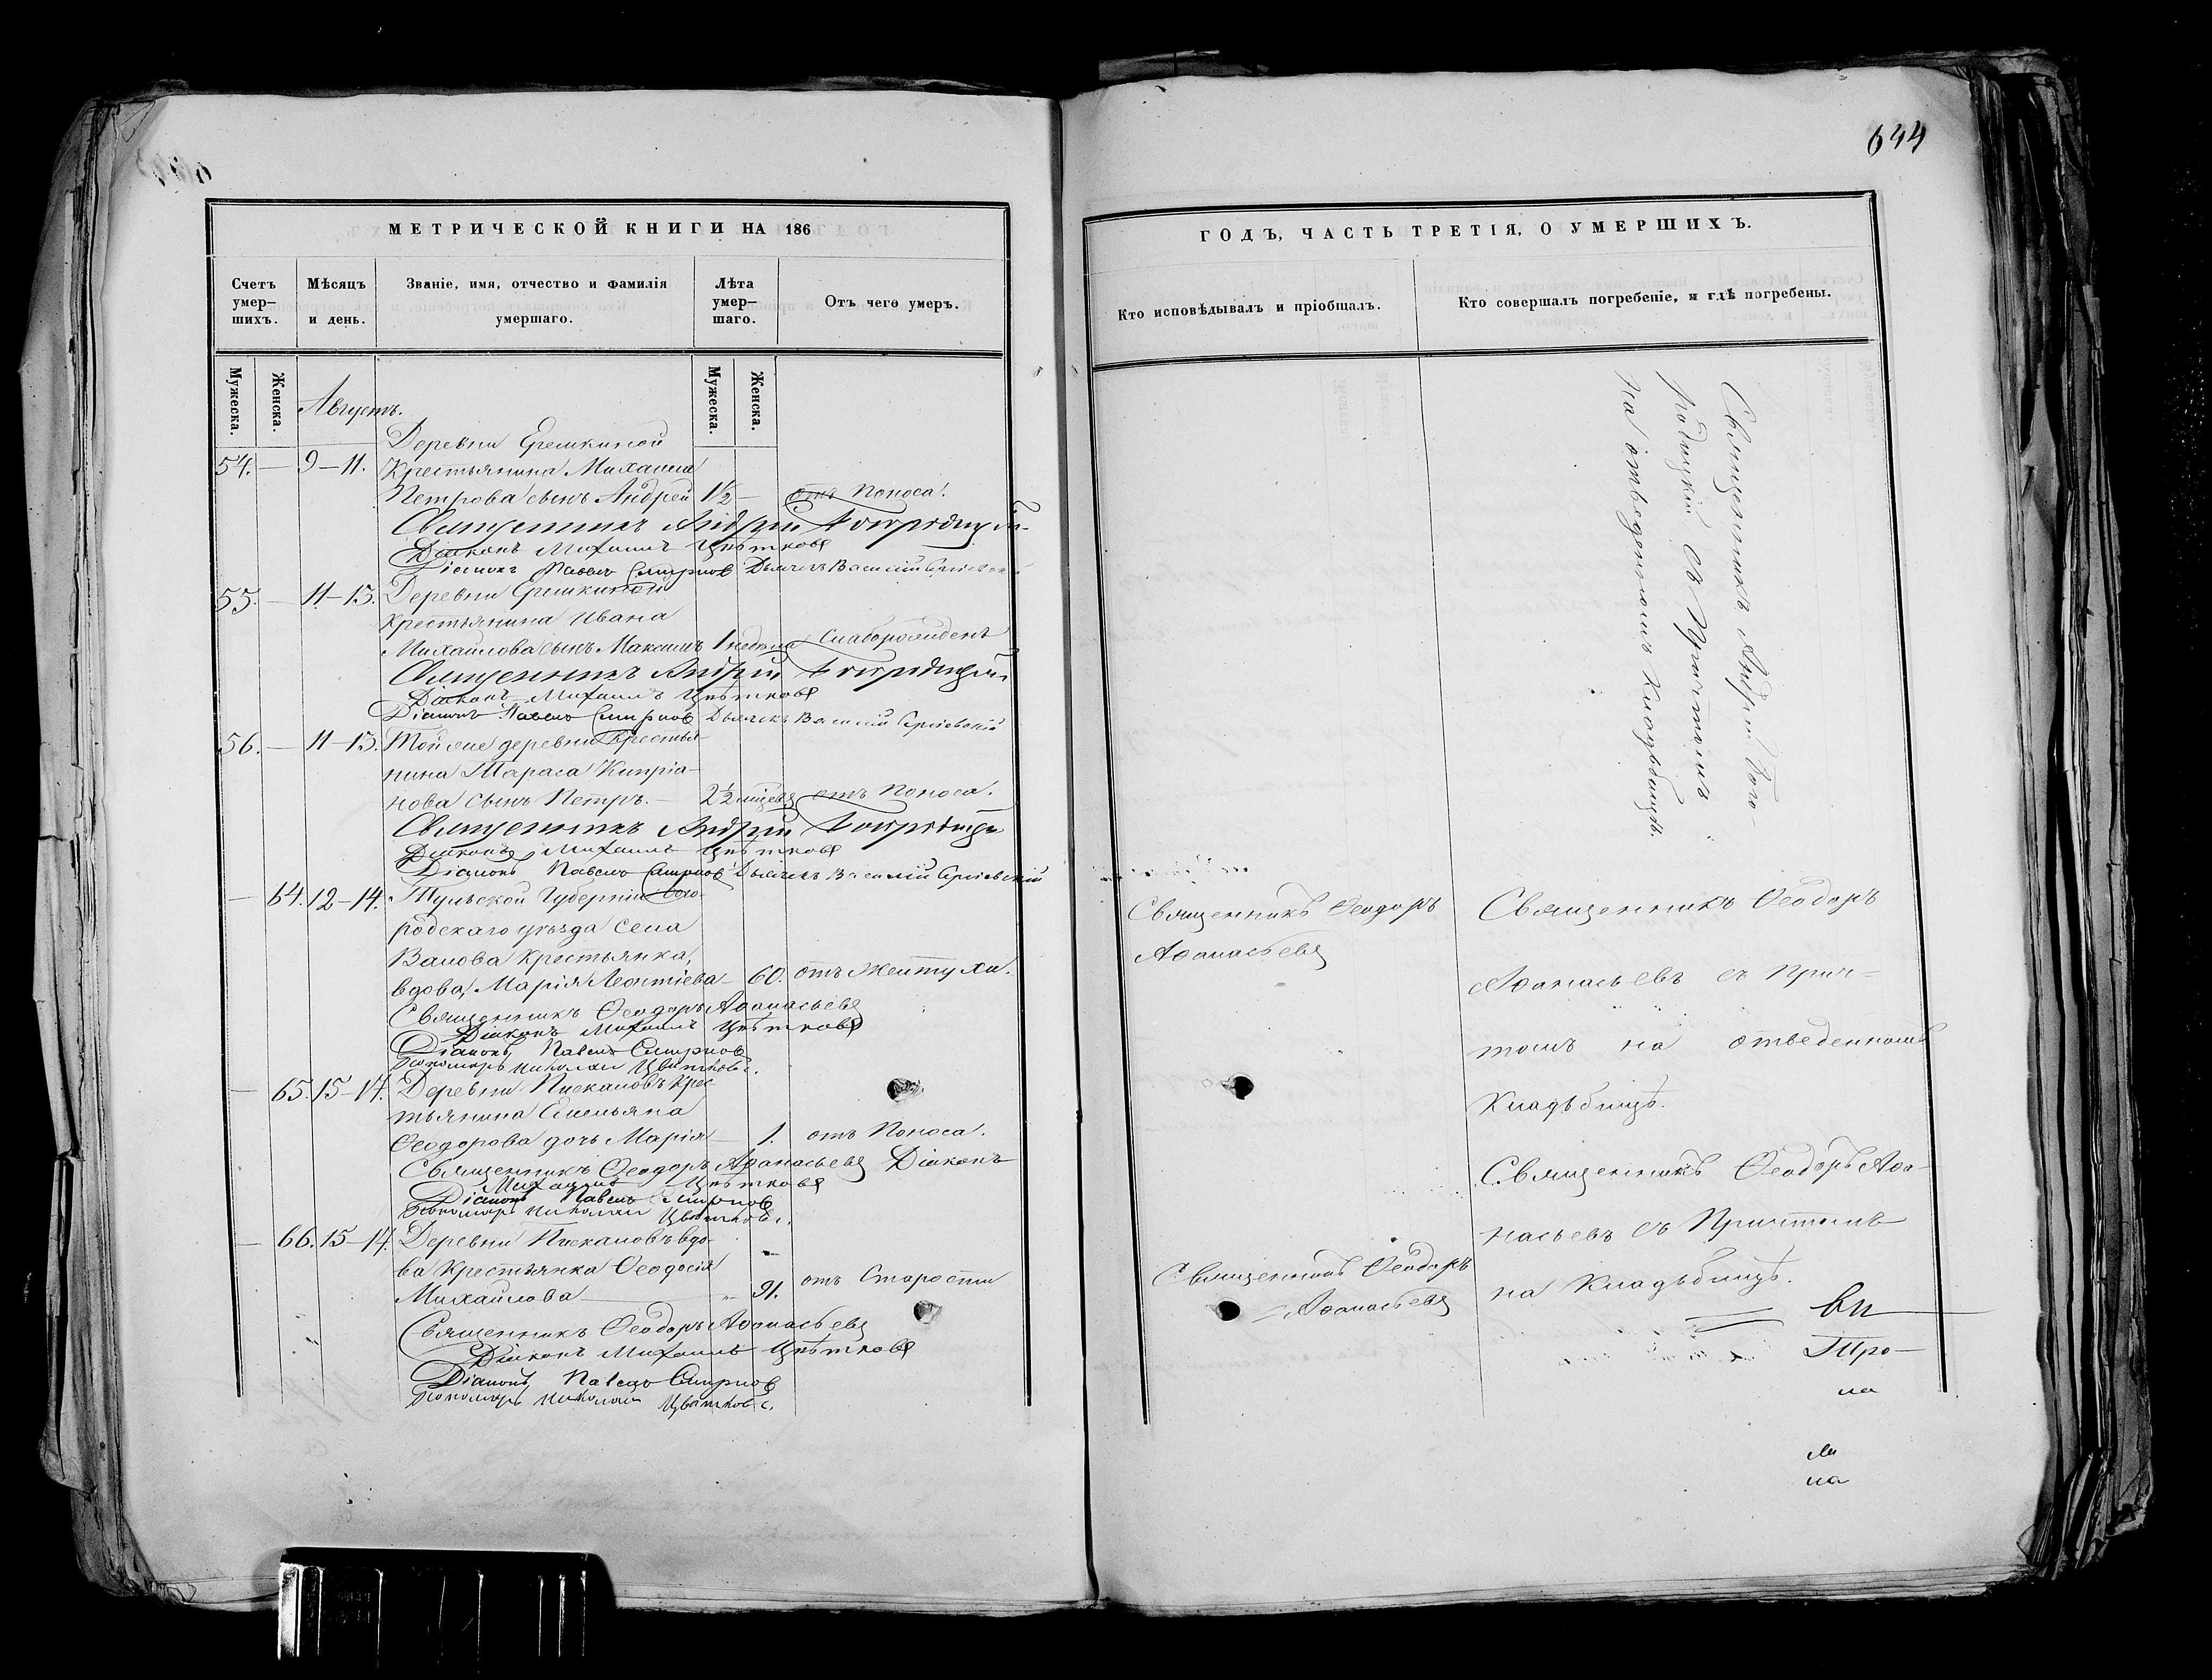 644
МЕТРИЧЕСКОЙ КНИГИ НА 186
Счетъ умер-
шихъ.
Мѣсяцъ
и день.
Званіе, имя, отчество и фамилія
умершаго.
Лѣта
умер-
шаго.
Отъ чего умеръ.
Мужеска.
Женска.
Мужеска.
Женска.
Августъ.
Деревни Ерешкиной
54. — 9–11. Крестьянина Михаила
Петрова сынъ Андрей 1½ — отъ Поноса.
Священникъ Андрей Богородицкій
Діаконъ Михаилъ Цвѣтковъ
Діаконъ Павелъ Смирновъ Дьячекъ Василій Сергіевскій
55. — 11–13. Деревни Ерешкиной
Крестьянина Ивана
Михайлова сынъ Максимъ 1 недѣля Слаборожденъ
Священникъ Андрей Богородицкій
Діаконъ Михаилъ Цвѣтковъ
Діаконъ Павелъ Смирновъ Дьячекъ Василій Сергіевскій
56. — 11–13. Той же деревни Крестья-
нина Тараса Кипріа-
нова сынъ Петръ. — 2½ мѣсяц отъ Поноса.
Священникъ Андрей Богородицкій
Діаконъ Михаилъ Цвѣтковъ
Діаконъ Павелъ Смирновъ Дьячекъ Василій Сергіевскій
— 64. 12–14. Тульской Губерніи Бого-
родскаго уѣзда села
Валова Крестьянка,
вдова, Марія Леонтіева — 60. отъ Желтухи.
Священникъ Ѳеодоръ Аѳанасьевъ
Діаконъ Михаилъ Цвѣтковъ
Діаконъ Павелъ Смирновъ
Пономарь Николай Цвѣтковъ.
— 65. 15–17. Деревни Пискаловъ Крес-
тьянина Емельяна
Ѳеодорова дочь Марія — 1. отъ Поноса.
Священникъ Ѳеодоръ Аѳанасьевъ Діаконъ
Михаилъ Цвѣтковъ
Діаконъ Павелъ Смирновъ
Пономарь Николай Цвѣтковъ.
— 66. 15–17. Деревни Пискаловъ вдо-
ва Крестьянка Ѳеодосія
Михайлова — 91. отъ Старости
Священникъ Ѳеодоръ Аѳанасьевъ
Діаконъ Михаилъ Цвѣтковъ
Діаконъ Павелъ Смирновъ
Пономарь Николай Цвѣтковъ.
ГОДЪ, ЧАСТЬ ТРЕТІЯ, О УМЕРШИХЪ.
Кто исповѣдывалъ и пріобщалъ.
Кто совершалъ погребеніе, и гдѣ погребены.
Священникъ Андрей Бого-
родицкій съ Причтомъ
на отведенномъ Кладбищѣ.
Священникъ Ѳеодоръ
Аѳанасьевъ
Священникъ Ѳеодоръ
Аѳанасьевъ съ Прич-
томъ на отведенномъ
Кладьбищѣ.
Священникъ Ѳеодоръ Аѳа-
насьевъ съ Причтомъ
на Кладьбищѣ.
Священникъ Ѳеодоръ
Аѳанасьевъ
Тро—
на